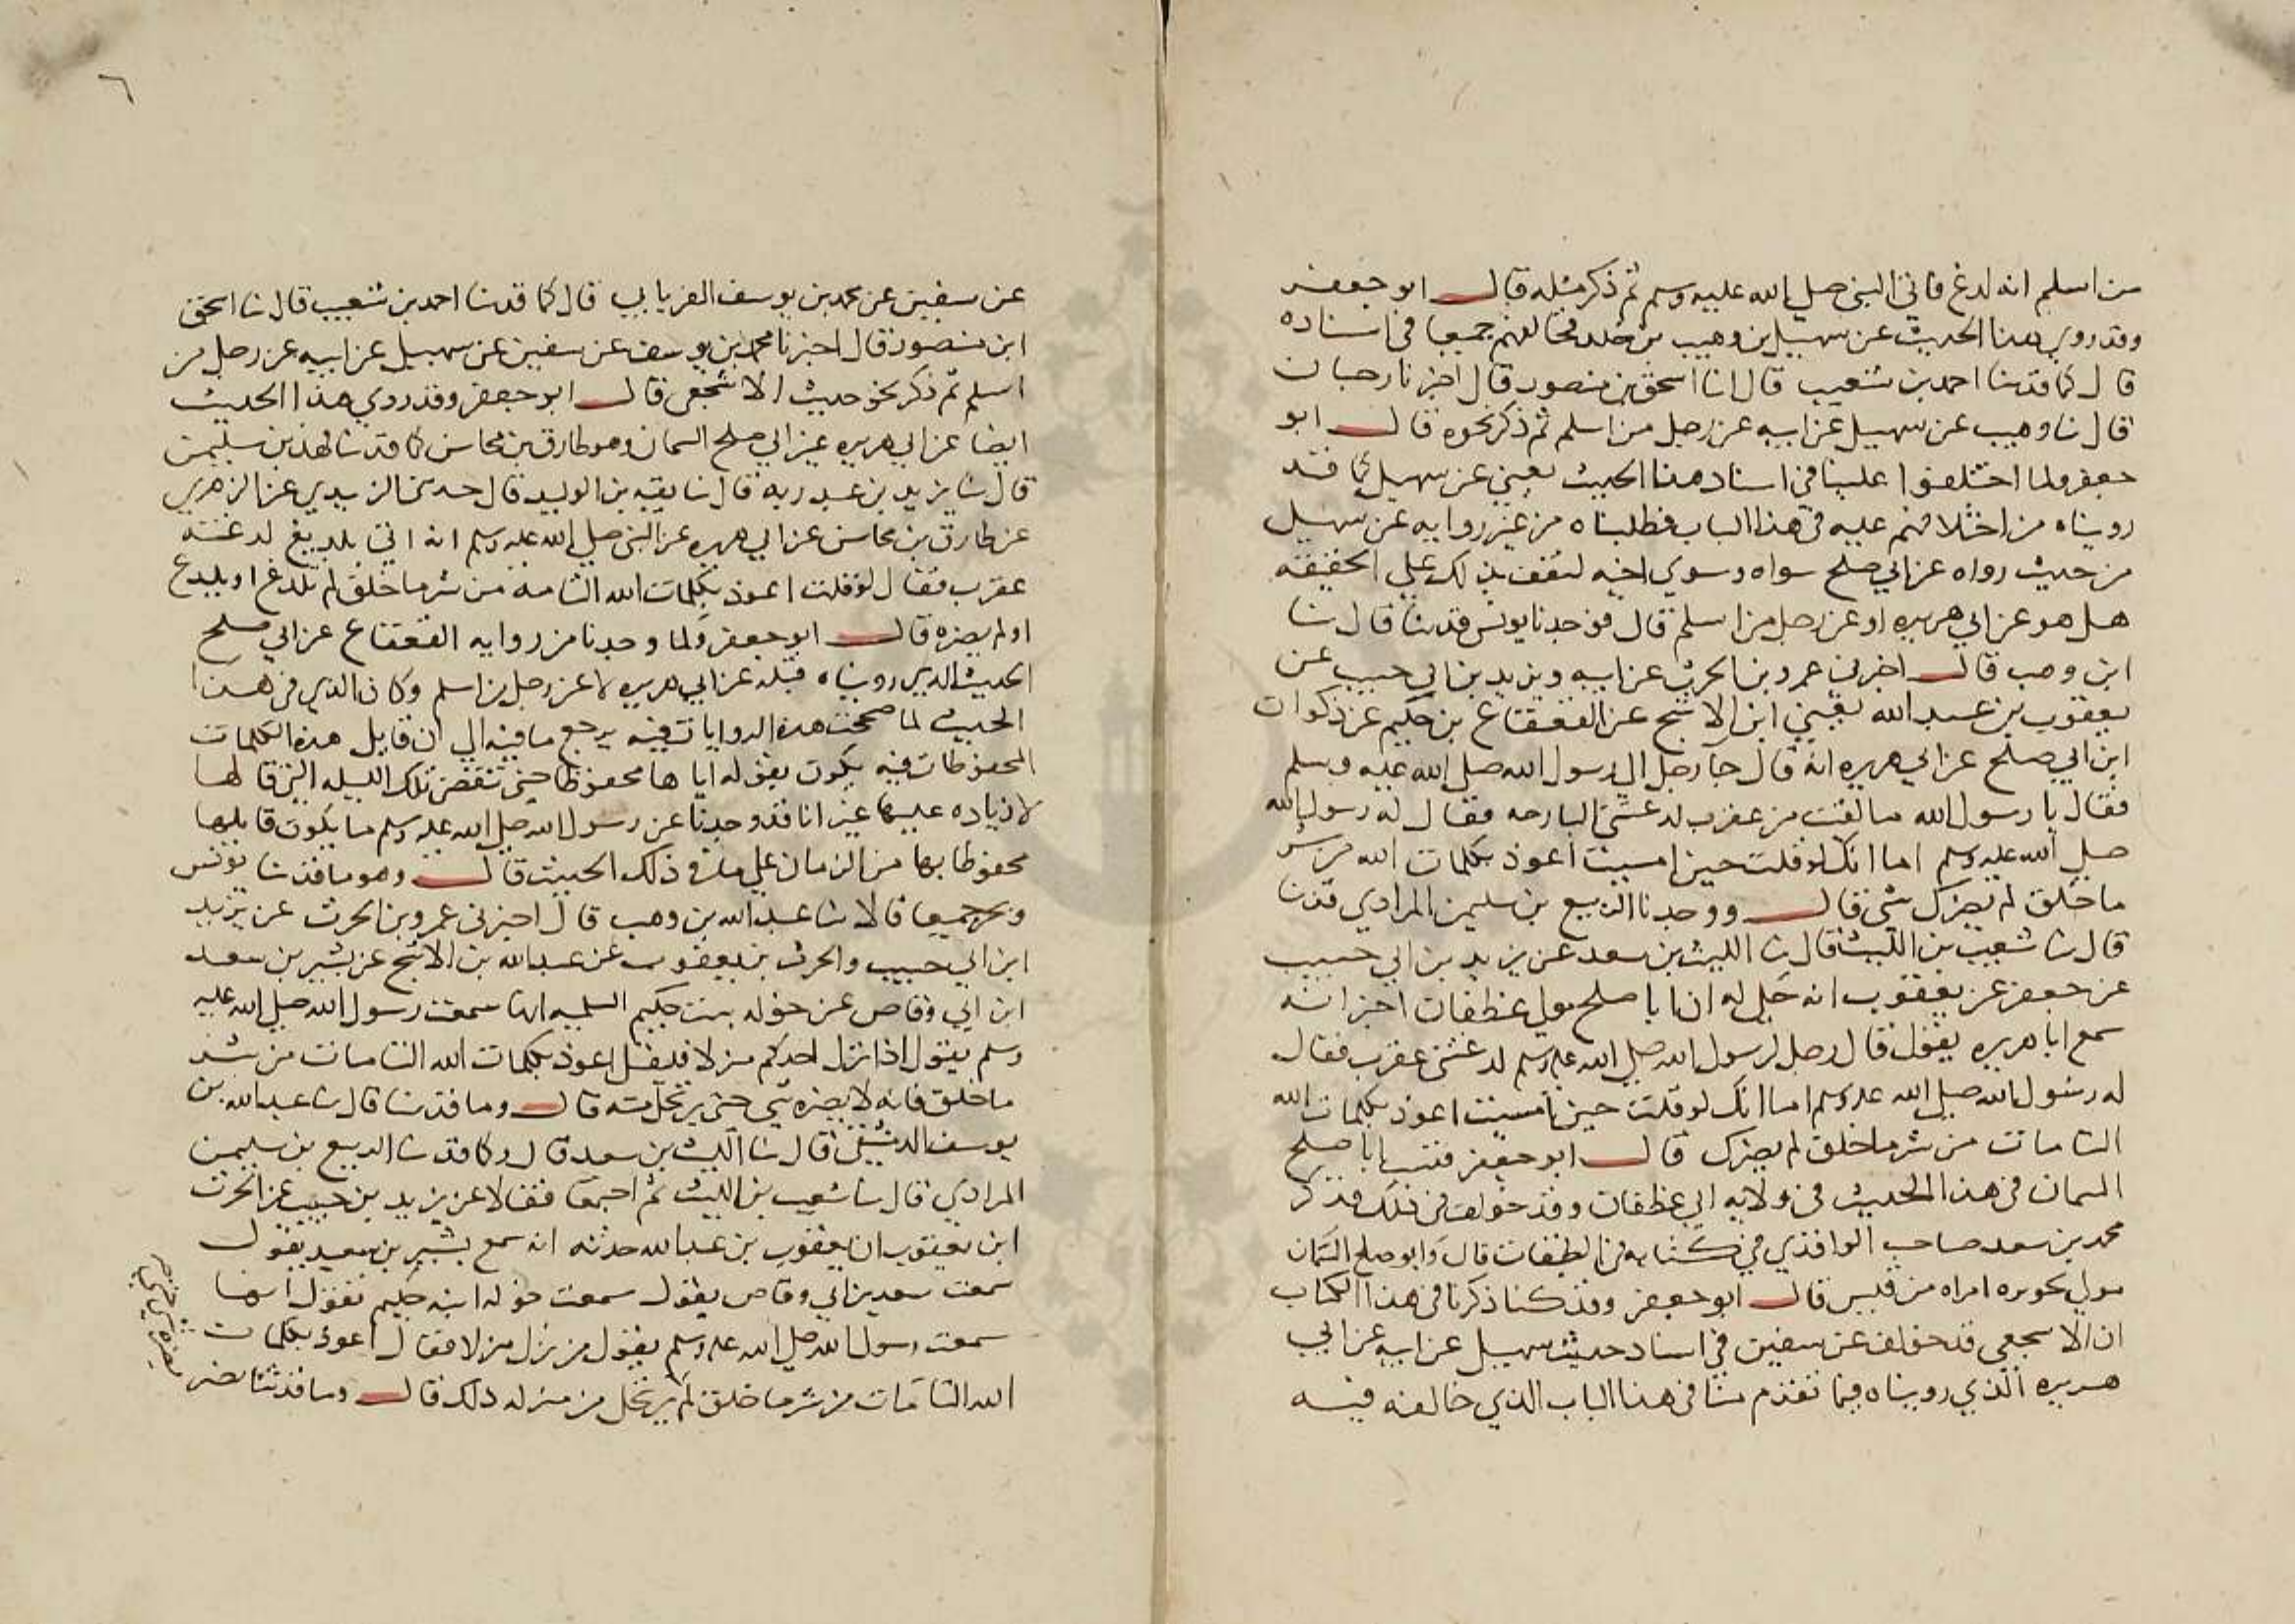 من اسلم انه لدغ فاتى النبي صلى الله عليه وسلم ثم ذكر مثله قال ابو جعفر
وقد روي هذا الحديث عن سهيل بن وهيب بن خلد فخالفهم جميعا في اسناده
قال كما قد نا احمد بن شعيب قال انا اسحق بن منصور قال اخبرنا حبان
قال نا وهيب عن سهيل عن ابيه عن رجل من اسلم ثم ذكر نحوه قال ابو
جعفر ولما اختلفوا علينا في اسناد هذا الحديث يعني عن سهيل كما قد
رويناه من اختلافهم عليه في هذا الباب فطلبناه من غير روايه عن سهيل
من حديث رواه عن ابي صلح سواه وسوي اخيه لنقف بذلك علي الحقيقه
هل هو عن ابي هريره او عن رجل من اسلم قال فوجدنا يونس قد نا قال نا
ابن وهب قال اخبرني عمرو بن الحرث عن ابيه ويزيد بن ابي حبيب عن
يعقوب بن عبد الله يعني ابن الاشج عن القعقاع بن حكيم عن ذكوان
ابن ابي صلح عن ابي هريره انه قال جا رجل الي رسول الله صلى الله عليه وسلم
فقال يا رسول الله ما لقيت من عقرب لدغتني البارحه فقال له رسول الله
صلى الله عليه وسلم اما انك لو قلت حين امسيت اعوذ بكلمات الله من شر
ما خلق لم يضرك شي قال ووجدنا الربيع بن سليمن المرادي قد نا
قال نا شعيب بن الليث قال نا الليث بن سعد عن يزيد بن ابي حبيب
عن جعفر عن يعقوب انه حكي له ان ابا صلح مولي غطفان اخبر انه
سمع ابا هريره يقول قال رجل لرسول الله صلى الله عليه وسلم لدغتني عقرب فقال
له رسول الله صلى الله عليه وسلم اما انك لو قلت حين امسيت اعوذ بكلمات الله
التامات من شر ما خلق لم يضرك قال ابو جعفر فنسب ابا صلح
السمان في هذا الحديث في ولايه الي غطفان وقد خولف في ذلك فذكر
محمد بن سعد صاحب الواقدي في كتابه في الطبقات قال وابو صلح السمان
مولي جويره امراه من قيس قال ابو جعفر وقد كنا ذكرنا في هذا الكتاب
ان الاشجعي قد خولف عن سفين في اسناد حديث سهيل عن ابيه عن ابي
هريره الذي رويناه فيما تقدم منا في هذا الباب الذي خالفه فيه
٦
عن سفين عن محمد بن يوسف الفريابي قال كما قد نا احمد بن شعيب قال نا اسحق
ابن منصور قال اخبرنا محمد بن يوسف عن سفين عن سهيل عن ابيه عن رجل من
اسلم ثم ذكر نحو حديث الاشجعي قال ابو جعفر وقد روي هذا الحديث
ايضا عن ابي هريره غير ابي صلح السمان وهو طارق بن مخاسن كما قد نا فهد بن سليمن
قال نا يزيد بن عبد ربه قال نا بقيه بن الوليد قال حدثنى الزبيدي عن الزهري
عن طارق بن مخاسن عن ابي هريره عن النبي صلى الله عليه وسلم انه اتي بلديغ لدغته
عقرب فقال لو قلت اعوذ بكلمات الله التامه من شر ما خلق لم تلدغ او يلدغ
او لم يضره قال ابو جعفر ولما وجدنا من روايه القعقاع عن ابي صلح
الحديث الذي رويناه قبله عن ابي هريره لا عن رجل من اسلم وكان الذي في هذا
الحديث لما صححت هذه الروايات فيه يرجع ما فيه الي ان قايل هذه الكلمات
المحفوظات فيه يكون بقوله اياها محفوظا حتي تنقضي تلك الليله التي قالها
لا زياده عليها غير انا قد وجدنا عن رسول الله صلى الله عليه وسلم ما يكون قايلها
محفوظا بها من الزمان علي ما في ذلك الحديث قال وهو ما قد نا يونس
وبحر جميعا قالا نا عبد الله بن وهب قال اخبرني عمرو بن الحرث عن يزيد
ابن ابي حبيب والحرث بن يعقوب عن عبد الله بن الاشج عن بشير بن سعد
ابن ابي وقاص عن خوله بنت حكيم السلميه انها سمعت رسول الله صلى الله عليه
وسلم يقول اذا نزل احدكم منزلا فليقل اعوذ بكلمات الله التامات من شر
ما خلق فانه لا يضره شي حتي يرتحل منه قال وما قد نا قال نا عبد الله بن
يوسف الدمشقي قال نا الليث بن سعد قال وكما قد نا الربيع بن سليمن
المرادي قال نا شعيب بن الليث ثم اجمعا فقالا عن يزيد بن حبيب عن الحرث
ابن يعقوب ان يعقوب بن عبد الله حدثه انه سمع بشير بن سعيد يقول
سمعت سعد بن ابي وقاص يقول سمعت خوله ابنه حكيم تقول انها
سمعت رسول الله صلى الله عليه وسلم يقول من نزل منزلا فقال اعوذ بكلمات
الله التامات من شر ما خلق لم يرتحل من منزله ذلك قال وما قد ثنا نصر
يضره شي حتي